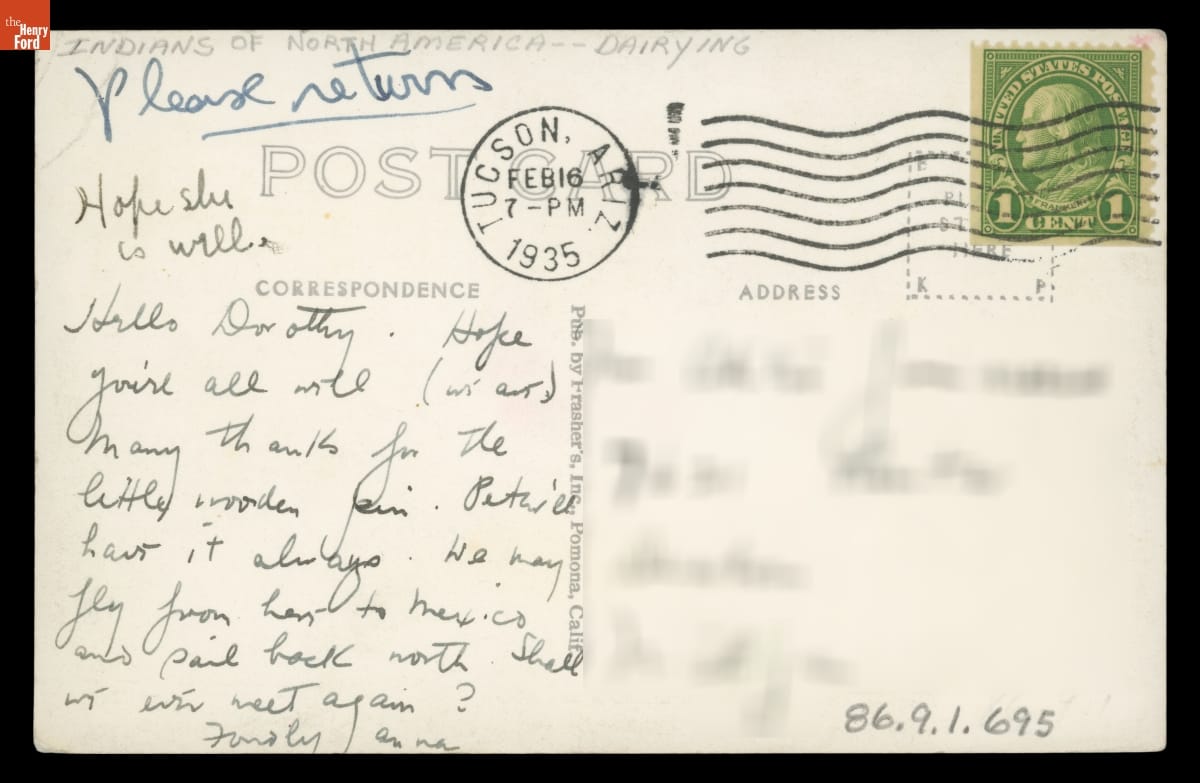 the
Henry
Ford
INDIANS OF NORTH AMERICA -- DAIRYING
Please return
POST CARD
TUCSON, ARIZ.
FEB 16
7-PM
1935
UNITED STATES POSTAGE
FRANKLIN
1 CENT 1
HERE
K P
Hope she
is well.
CORRESPONDENCE
ADDRESS
Hello Dorothy. Hope
you're all well (we are)
Many thanks for the
little wooden pin. Pet'll
have it always. We may
fly from here to Mexico
and sail back north. Shall
we ever meet again?
Fondly Janna
Pub. by Frasher's, Inc., Pomona, Calif.
86.9.1.695